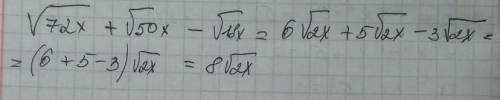 √72x + √50x - √18x = 6√2x + 5√2x - 3√2x =
= (6 + 5 - 3)√2x = 8√2x